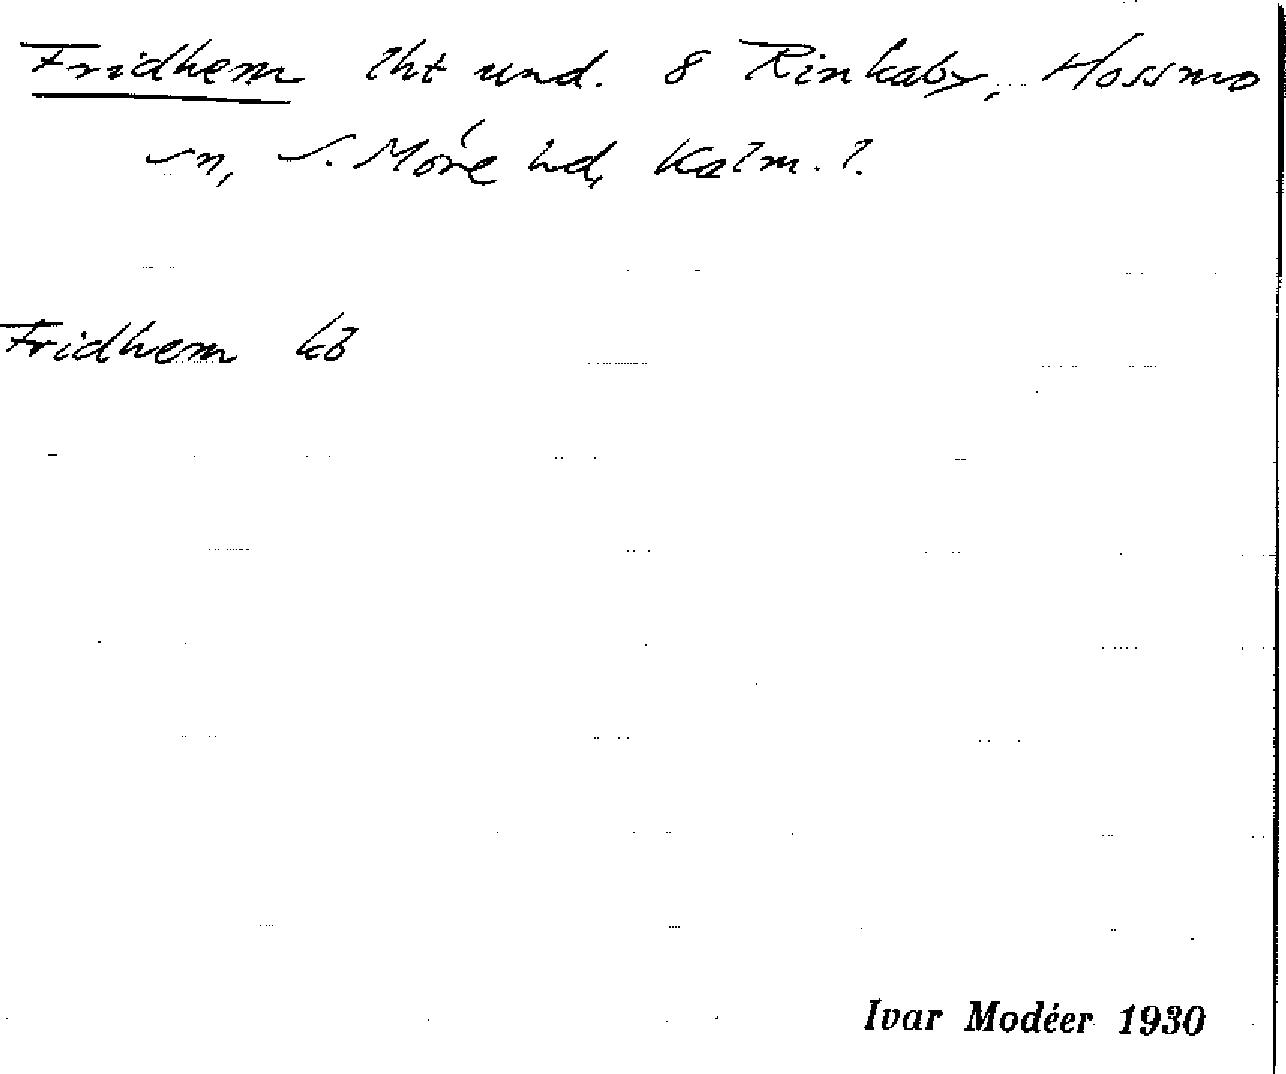 Fridhem lht und. 8 Rinkaby, Hossmo
sn, S. Möre hd, Kalm. l.
Fridhem kb
Ivar Modéer 1930